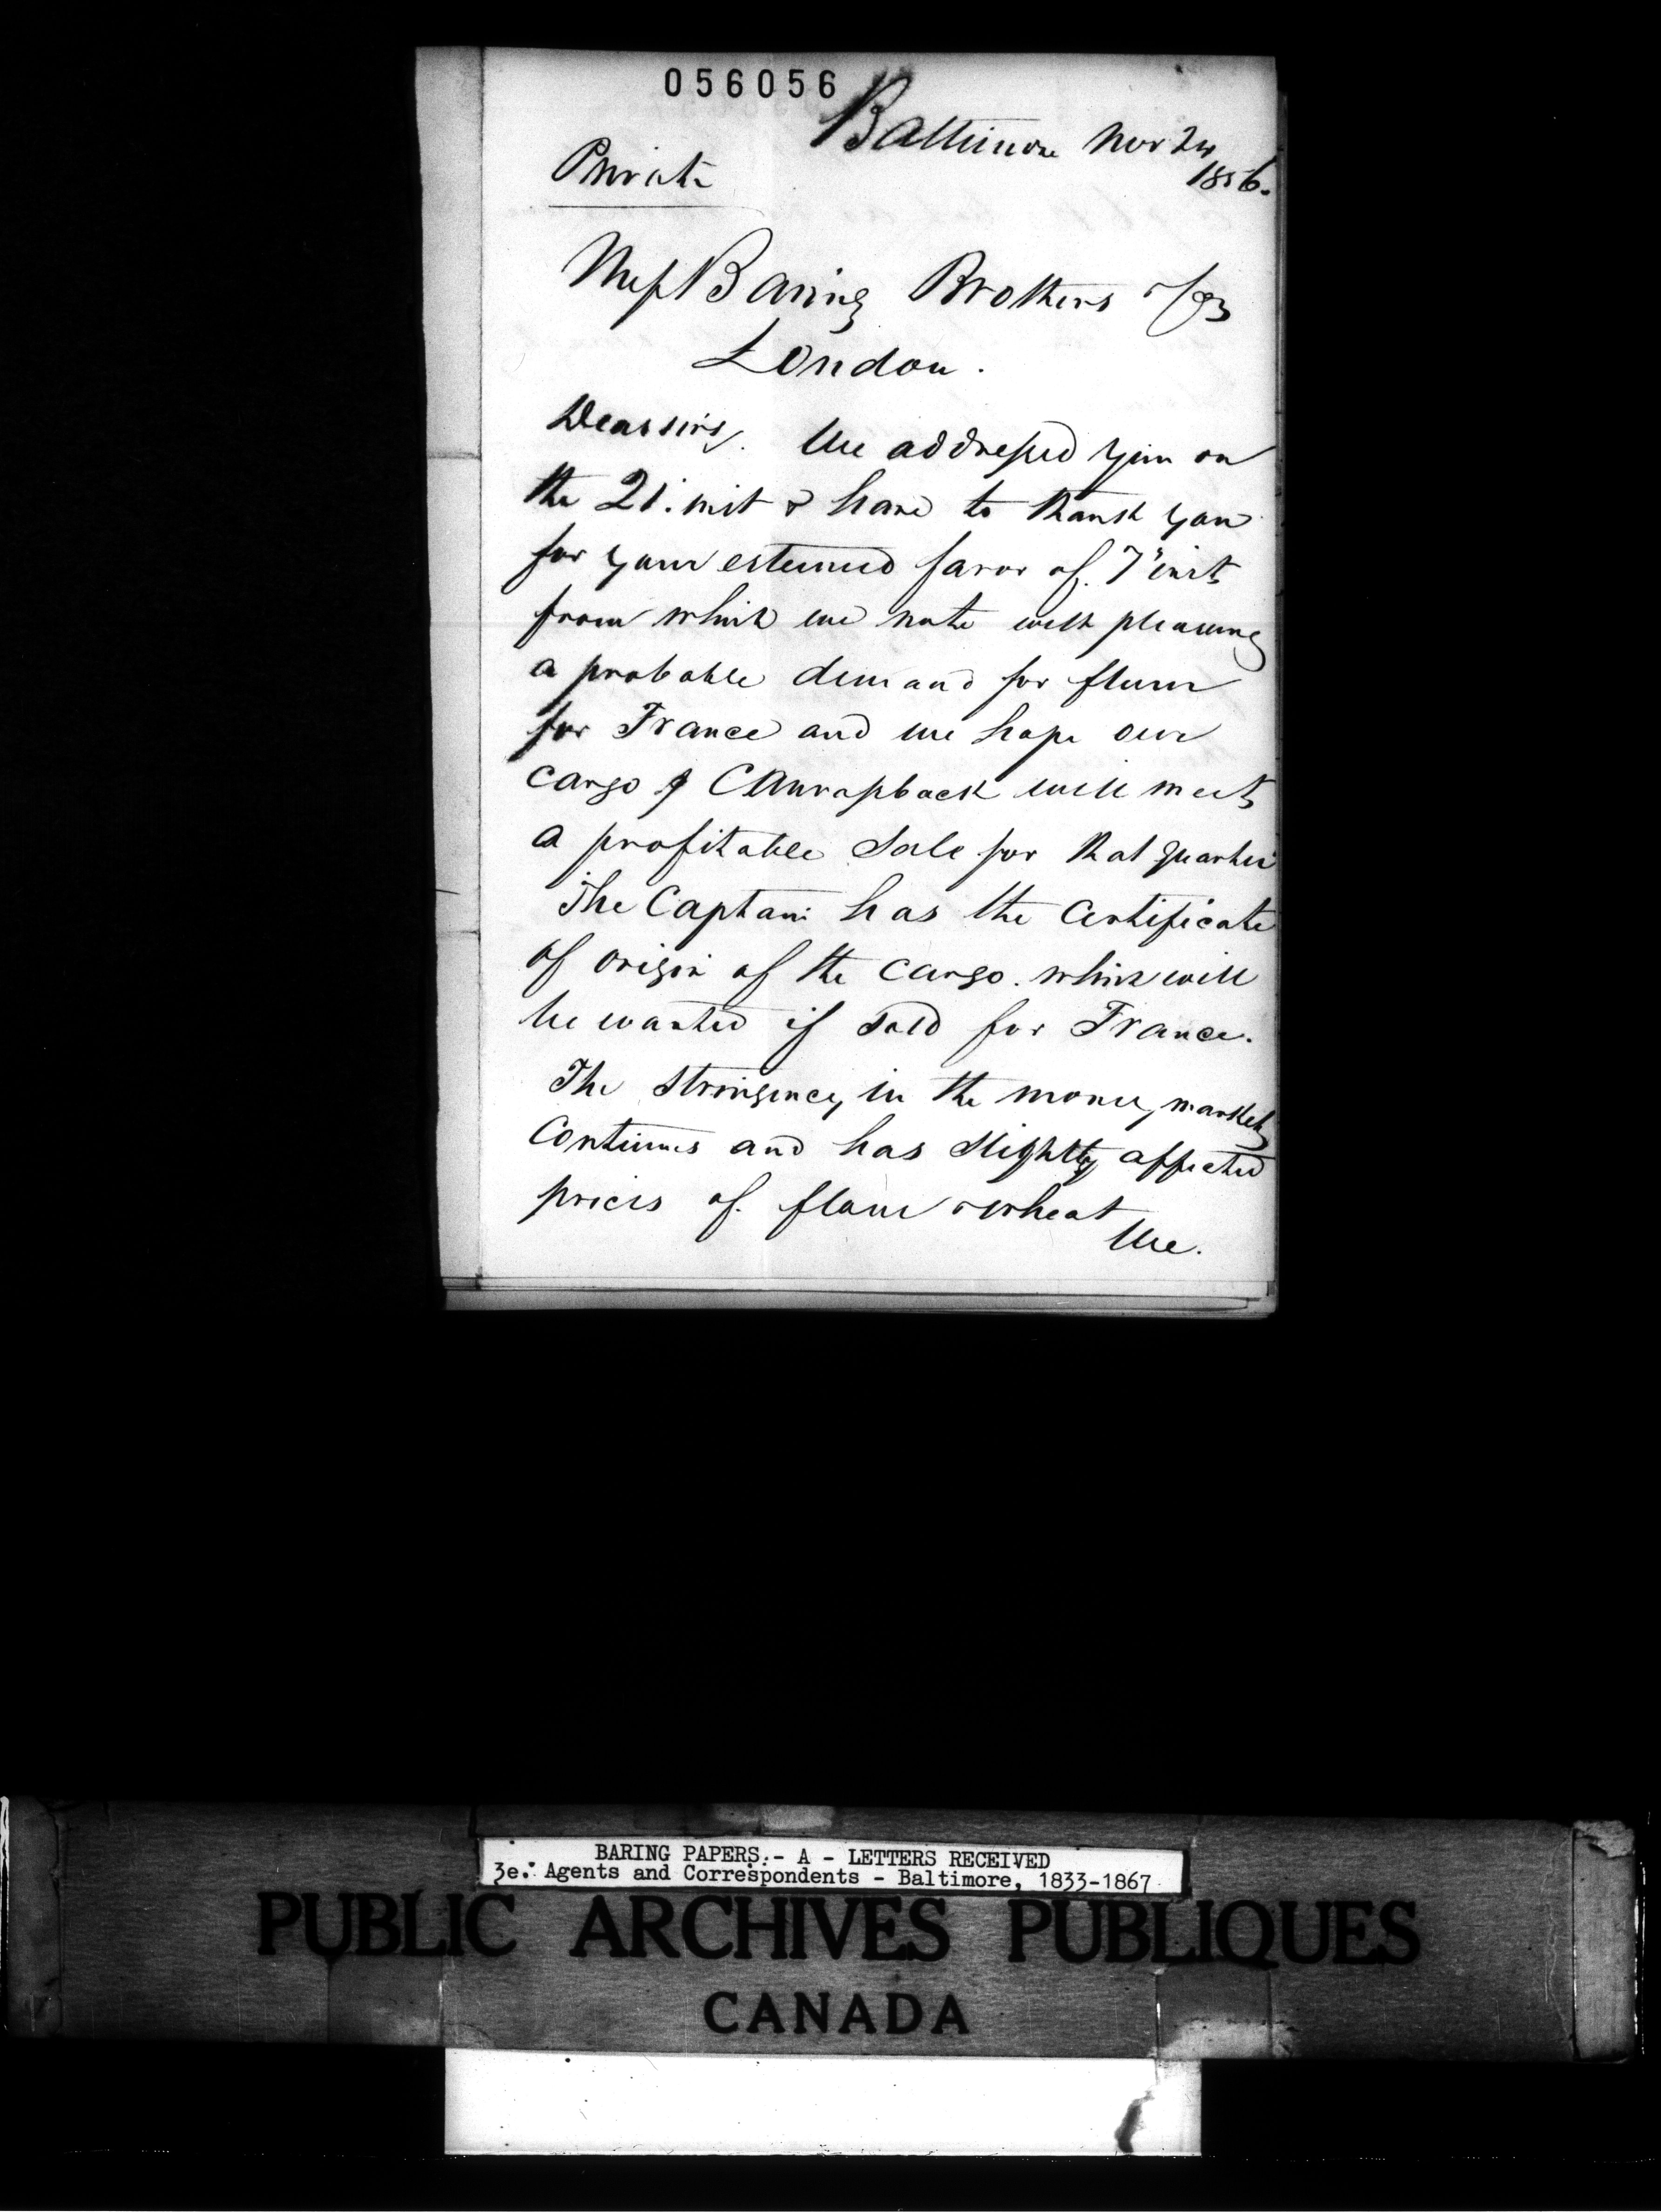 056056
Baltimore Nov 24
1856.
Private
Mess Baring Brothers & Co
London.
Dear sirs. We addressed you on
the 21. inst & have to thank you
for your esteemed favor of 7" inst
from which we note with pleasure
a probable demand for flour
for France and we hope our
cargo p Canvasback will meet
a profitable sale for that quarter
The Captain has the Certificate
of origin of the cargo. which will
be wanted if sold for France.
The stringency in the money market
continues and has slightly affected
prices of flour & wheat
We.
BARING PAPERS.- A - LETTERS RECEIVED
3e. Agents and Correspondents - Baltimore, 1833-1867
PUBLIC ARCHIVES PUBLIQUES
CANADA